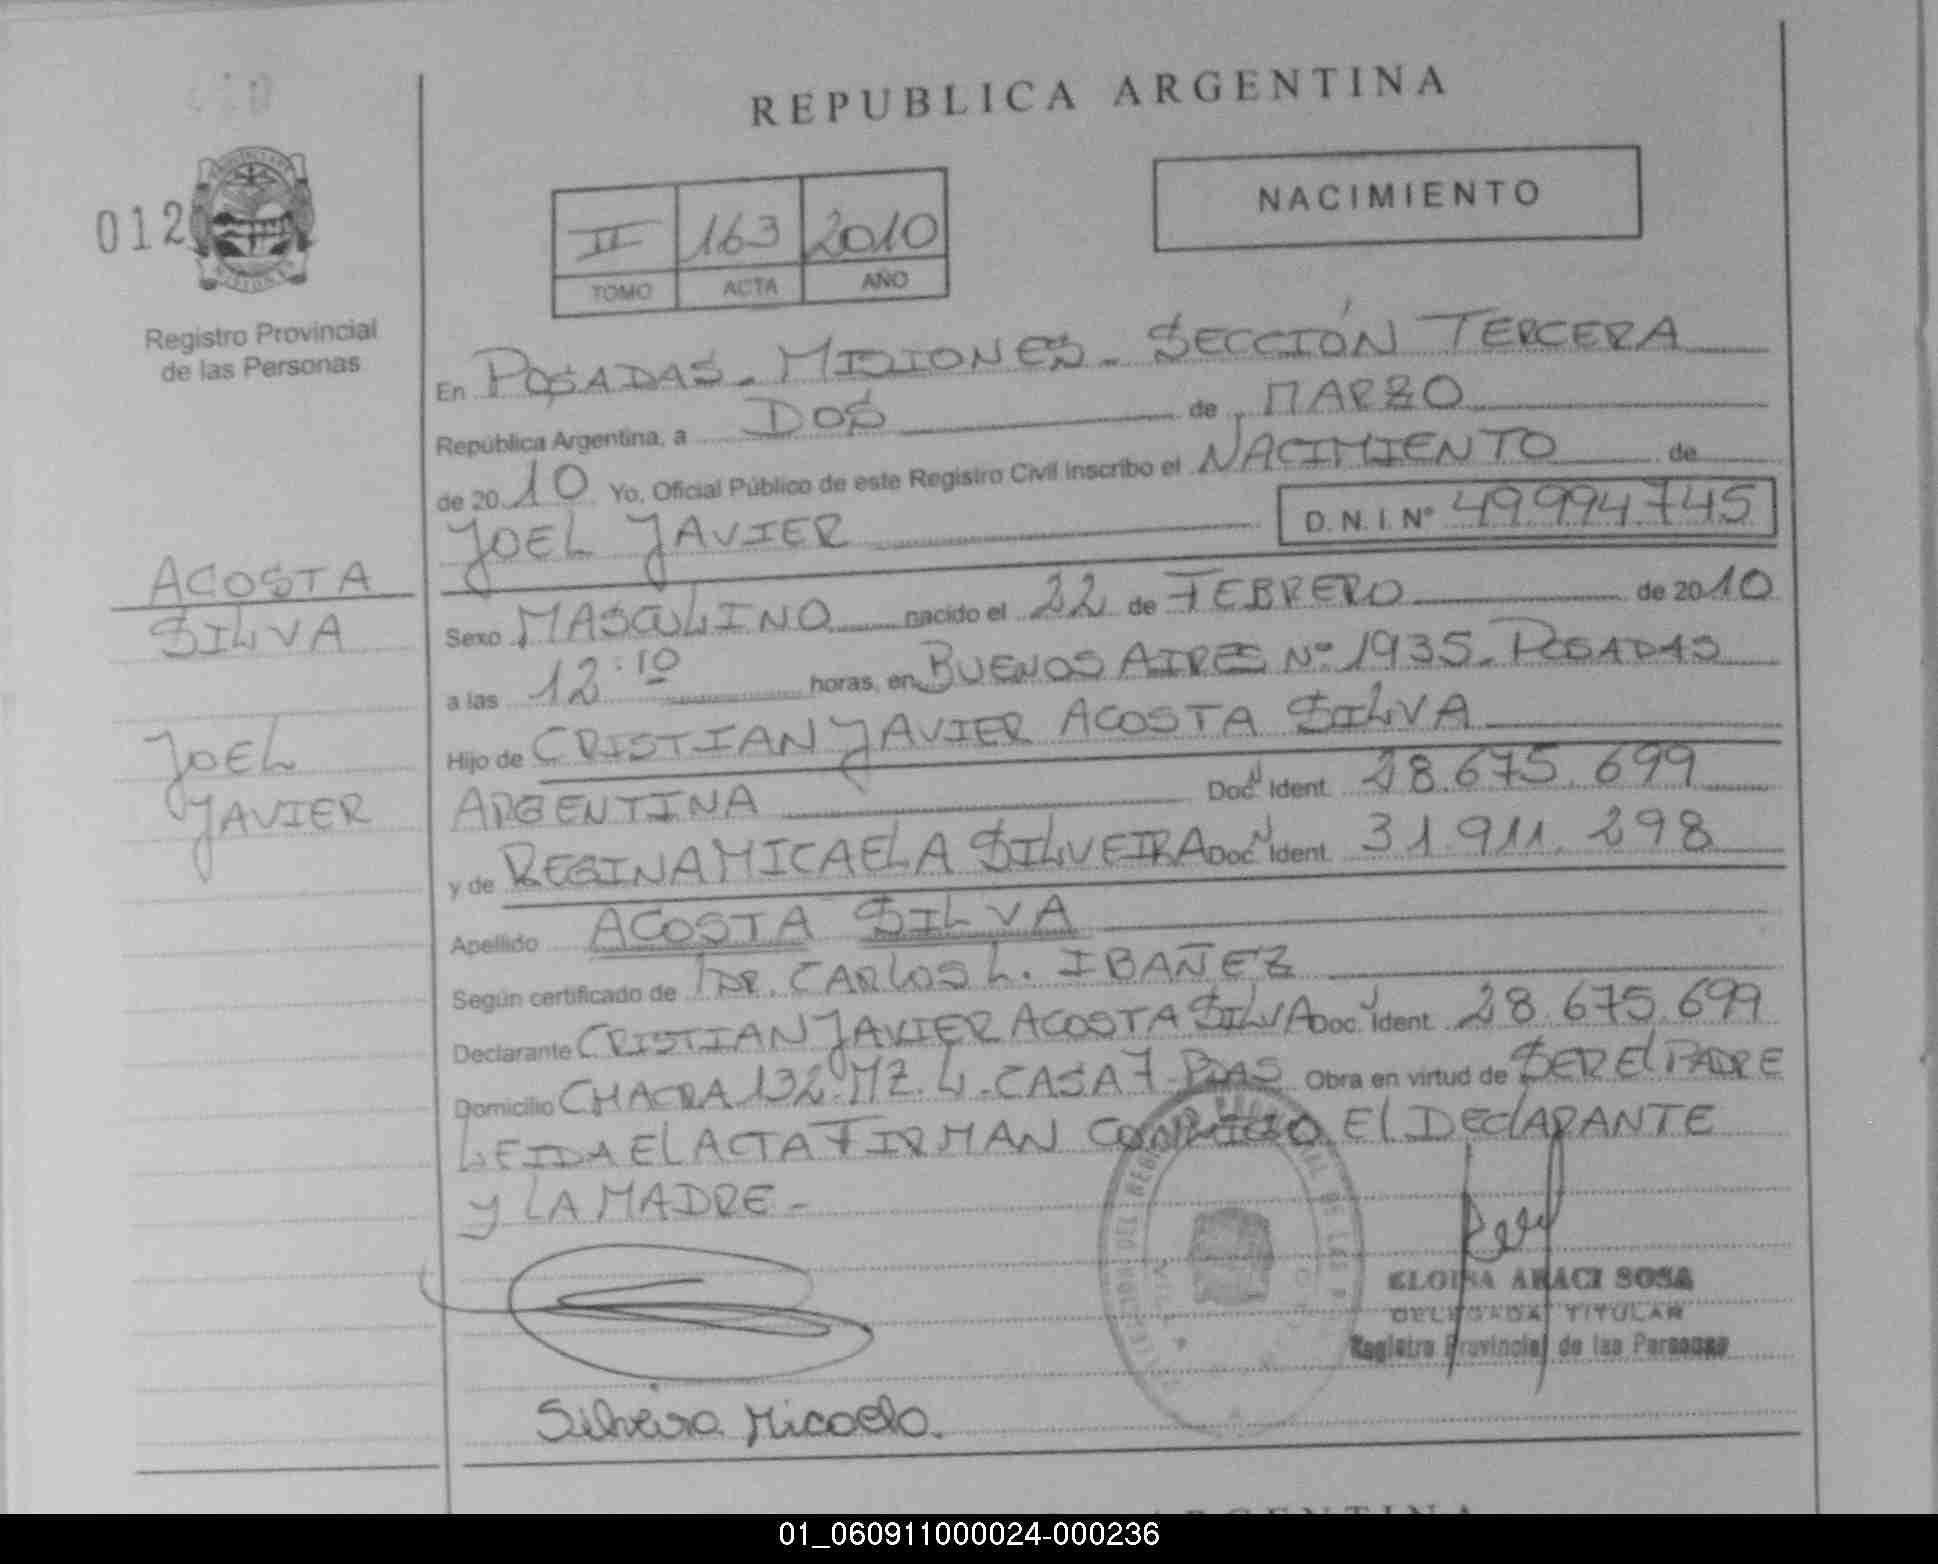 REPUBLICA ARGENTINA
NACIMIENTO
012
II 163 2010
TOMO ACTA AÑO
Registro Provincial
de las Personas
En POSADAS - MISIONES - SECCIÓN TERCERA
República Argentina, a DOS de MARZO
de 2010 Yo, Oficial Público de este Registro Civil inscribo el NACIMIENTO de
JOEL JAVIER D.N.I. Nº 49994745
ACOSTA
SILVA
JOEL
JAVIER
Sexo MASCULINO nacido el 22 de FEBRERO de 2010
a las 12:10 horas, en BUENOS AIRES Nº 1935 - POSADAS
Hijo de CRISTIAN JAVIER ACOSTA SILVA
ARGENTINA Doc. Ident. 28.675.699
y de REGINA MICAELA SILVEIRA Doc. Ident. 31.911.298
Apellido ACOSTA SILVA
Según certificado de DR. CARLOS L. IBAÑEZ
Declarante CRISTIAN JAVIER ACOSTA SILVA Doc. Ident. 28.675.699
Domicilio CHACRA 132 MZ. L - CASA 7 - PDAS Obra en virtud de SER El PADRE
LEIDA El ACTA FIRMAN CONMIGO El DEClARANTE
y LA MADRE -
ELOISA ARACI SOSA
DELEGADA TITULAR
Registro Provincial de las Personas
Silveira Micaela.
ARGENTINA
01_060911000024-000236